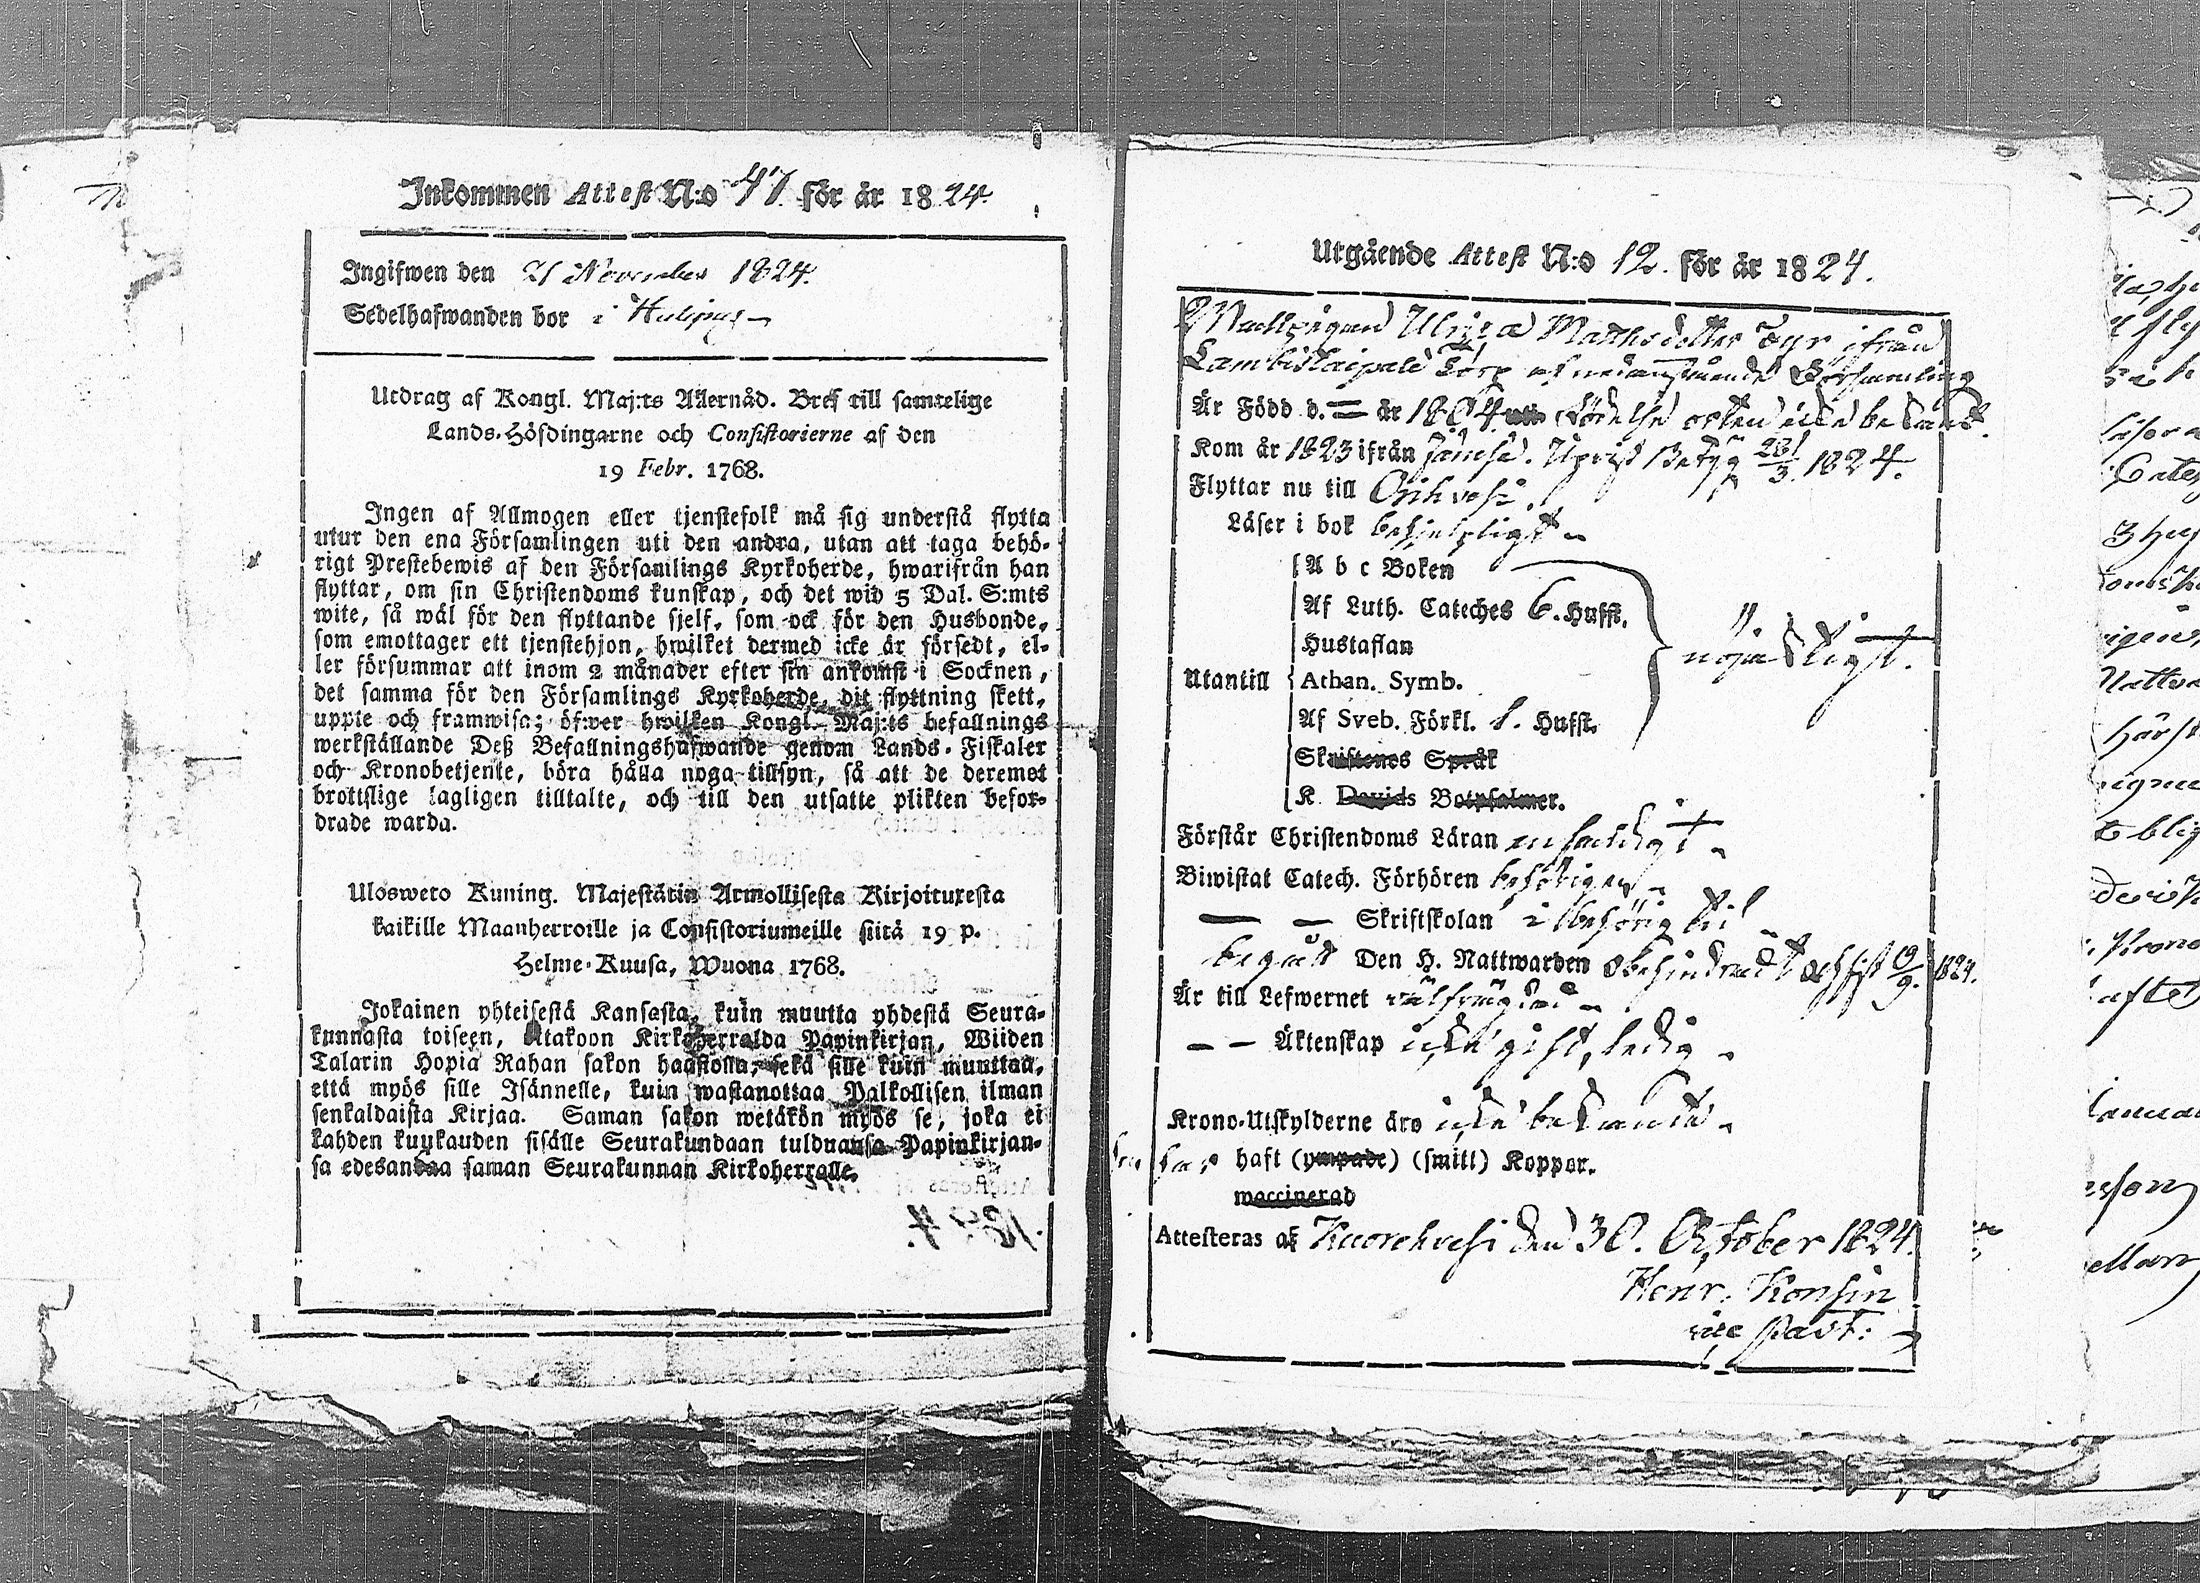 Inkommen Attest N:o 47. för år 1824.
Ingifwen den 21 November 1824.
Sedelhafwanden bor i
Utdrag af Kongl. Maj:ts Allernåd. Bref till samtelige
Lands-Höfdingarne och Consistorierne af den
19 Febr. 1768.
Ingen af Allmogen eller tjenstefolk må sig understå flytta
utur den ena Församlingen uti den andra, utan att taga behö-
rigt Prestebewis af den Församlings Kyrkoherde, hwarifrån han
flyttar, om sin Christendoms kunskap, och det wid 5 Dal. S:mts
wite, så wäl för den flyttande sjelf, som ock för den Husbonde,
som emottager ett tjenstehjon, hwilket dermed icke är försedt, el-
ler försummar att inom 2 månader efter sin ankomst i Socknen,
det samma för den Församlings Kyrkoherde, dit flyttning skett,
uppte och framwisa; öfwer hwilken Kongl. Maj:ts befallnings
werkställande Deß Befallningshafwande genom Lands-Fiskaler
och Kronobetjente, böra hålla noga tillsyn, så att de deremot
brottslige lagligen tilltalte, och till den utsatte plikten befor-
drade warda.
Ulosweto Kuning. Majestätin Armollisesta Kirjoituxesta
kaikille Maanherroille ja Consistoriumeille siitä 19 p.
Helme-Kuusa, Wuona 1768.
Jokainen yhteisestä Kansasta, kuin muutta yhdestä Seura-
kunnasta toiseen, Ottakoon Kirkoherralda Papinkirjan, Wiiden
Talarin Hopia Rahan sakon haastolla, sekä sille kuin muuttaa,
että myös sille Isännelle, kuin wastanottaa Palkollisen ilman
senkaldaista Kirjaa. Saman sakon wetäkön myös se, joka ei
kahden kuukauden sisälle Seurakundaan tulduansa Papinkirjan-
sa edesandaa saman Seurakunnan Kirkoherralle.
Utgående Attest N:o 12. för år 1824.
Ulrica Matthsdotter ifrån
Torp af nedanstående Församling
Är Född d. — år 1804 födelse orten icke bekant.
Kom år 1823 ifrån Jämsä. 28/3. 1824.
Flyttar nu till Orihvesi.
Läser i bok behjelpligt
A b c Boken
Af Luth. Cateches 6. Hufst.
Hustaflan
nöjaktigt.
Utantill Athan. Symb.
Af Sveb. Förkl. Hufst.
Skriftenes Språk
K. Davids Botpsalmer.
Förstår Christendoms Läran enfaldigt
Biwistat Catech. Förhören behörigen
— — Skriftskolan behörig tid
begått Den H. Nattwarden obehindradt och sist 1824.
Är till Lefwernet välfrägdad
— — Äktenskap icke gift, ledig
Krono-Utskylderne äro icke bekante
har haft (ympade) (smitt) Koppor.
waccinerad
Attesteras af Kuorehvesi den 30. October 1824.
Henr. Konsin
vice past.